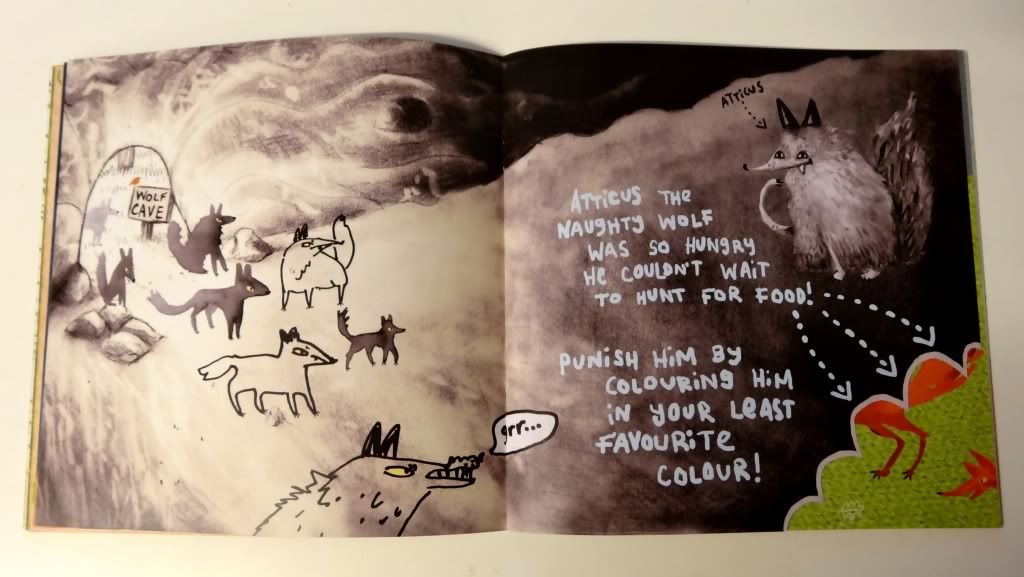 WOLF
CAVE
grr...
ATTICUS
ATTICUS THE
NAUGHTY WOLF
WAS SO HUNGRY
HE COULDN'T WAIT
TO HUNT FOR FOOD!
PUNISH HIM BY
COLOURING HIM
IN YOUR LEAST
FAVOURITE
COLOUR!